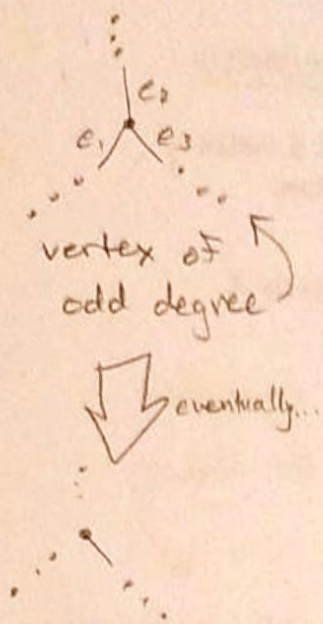 e₂
e₁ e₃
vertex of
odd degree
eventually...